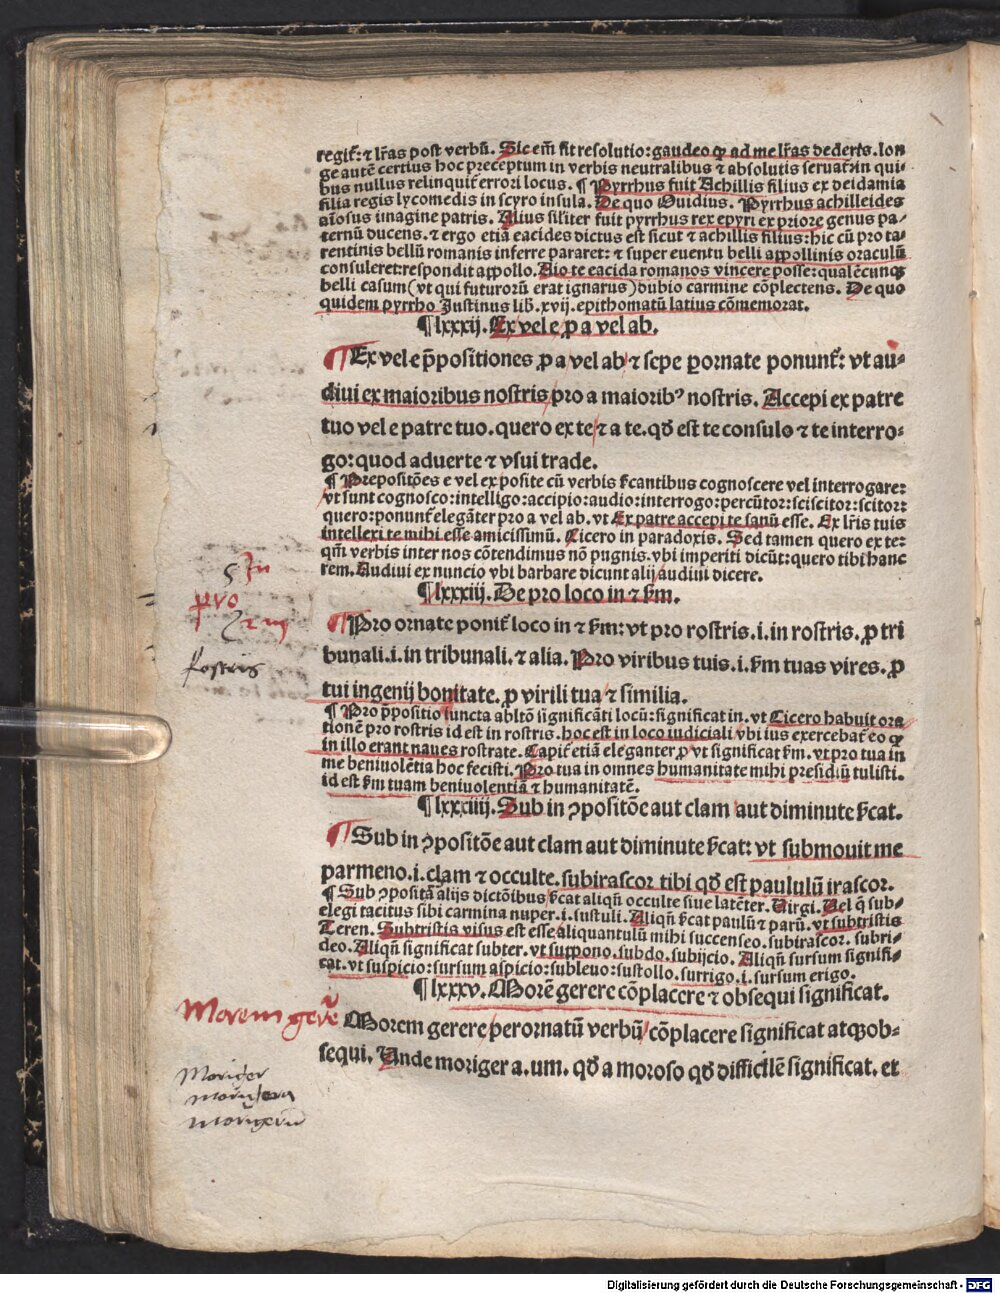 regit᷑: ⁊ lr̃as post verbũ. Sic em̃ fit resolutio: gaudeo ꝙ ad me lr̃as dederis. lon
ge autẽ certius hoc preceptum in verbis neutralibus ⁊ absolutis seruat᷑: in qui-
bus nullus relinquit᷑ errori locus. ¶ Pyrrhus fuit Achillis filius ex deidamia
filia regis lycomedis in scyro insula. De quo Ouidius. Pyrrhus achilleides
aĩosus imagine patris. Alius sil'iter fuit pyrrhus rex epyri ex priore genus pa-
ternũ ducens. ⁊ ergo etiã eacides dictus est sicut ⁊ achillis filius: hic cũ pro ta-
rentinis bellũ romanis inferre pararet: ⁊ super euentu belli appollinis oraculũ
consuleret: respondit appollo. Aio te eacida romanos vincere posse: qualẽcunqꝫ
belli casum (vt qui futurorũ erat ignarus) dubio carmine cõplectens. De quo
quidem pyrrho Justinus lib. xvij. epithomatũ latius cõmemorat.
¶ lxxxij. Ex vel e ꝓ a vel ab.
¶ Ex vel e p̃positiones ꝓ a vel ab ⁊ sepe ꝑornate ponunt᷑: vt au-
diui ex maioribus nostris pro a maioribꝰ nostris. Accepi ex patre
tuo vel e patre tuo. quero ex te ⁊ a te. qđ est te consulo ⁊ te interro-
go: quod aduerte ⁊ vsui trade.
¶ Prepositões e vel ex posite cũ verbis ſ̃cantibus cognoscere vel interrogare:
vt sunt cognosco: intelligo: accipio: audio: interrogo: percũtor: sciscitor: scitor:
quero: ponunt᷑ elegãter pro a vel ab. vt Ex patre accepi te sanũ esse. Ex lr̃is tuis
intellexi te mihi esse amicissimũ. Cicero in paradoxis. Sed tamen quero ex te:
qm̃ verbis inter nos cõtendimus nõ pugnis. vbi imperiti dicũt: quero tibi hanc
rem. Audiui ex nuncio vbi barbare dicunt alij audiui dicere.
¶ lxxxiij. De pro loco in ⁊ ſ̃m.
¶ Pro ornate ponit᷑ loco in ⁊ ſ̃m: vt pro rostris. i. in rostris. ꝓ tri
bunali. i. in tribunali. ⁊ alia. Pro viribus tuis. i. ſ̃m tuas vires. ꝓ
tui ingenij bonitate. ꝓ virili tua ⁊ similia.
¶ Pro p̃positio iuncta abltõ significãti locũ: significat in. vt Cicero habuit ora
tionẽ pro rostris id est in rostris. hoc est in loco iudiciali vbi ius exercebat᷑ eo ꝙ
in illo erant naues rostrate. Capit᷑ etiã eleganter ꝓ vt significat ſ̃m. vt pro tua in
me beniuolẽtia hoc fecisti. Pro tua in omnes humanitate mihi presidiũ tulisti.
id est ſ̃m tuam beniuolentiã ⁊ humanitatẽ.
¶ lxxxiiij. Sub in ↄpositõe aut clam aut diminute ſ̃cat.
¶ Sub in ↄpositõe aut clam aut diminute ſ̃cat: vt submouit me
parmeno. i. clam ⁊ occulte. subirascor tibi qđ est paululũ irascor.
¶ Sub ↄpositã alijs dictõibus ſ̃cat aliqñ occulte siue latẽter. Virgi. Vel q̃ sub-
elegi tacitus tibi carmina nuper. i. sustuli. Aliqñ ſ̃cat paulũ ⁊ parũ. vt subtristis
Teren. Subtristis visus est esse aliquantulũ mihi succenseo. subirascor. subri-
deo. Aliqñ significat subter. vt suppono. subdo. subijcio. Aliqñ sursum signifi-
cat. vt suspicio: sursum aspicio: subleuo: sustollo. surrigo. i. sursum erigo.
¶ lxxxv. Morẽ gerere cõplacere ⁊ obsequi significat.
Morem gerere perornatũ verbũ cõplacere significat atqꝫ ob-
sequi. Unde moriger a. um. qđ a moroso qđ difficilẽ significat. et
Jn
pro
rostris
Morem gerẽ
Moriger
Morigera
Morigerũ
Digitalisierung gefördert durch die Deutsche Forschungsgemeinschaft - DFG